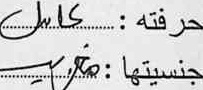 حرفته : عامل
جنسيتها : مغربية